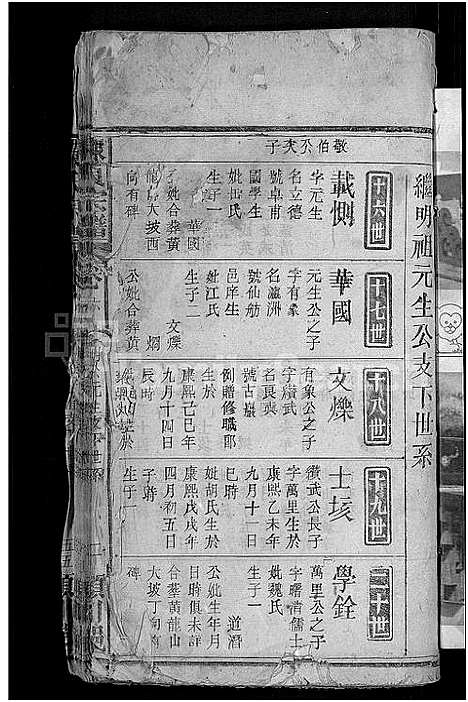 繼明祖元生公支下世系
敬伯公次子
十六世
載惻
字元生
名立德
號卓甫
國學生
妣邱氏
生子一
華國
子妣合葬黃
龍山大坡西
向有碑
十七世
華國
元生公之子
字有象
名瀛洲
號仙舫
邑庠生
妣江氏
生子二
文爍
文燜
公妣合葬黃
十八世
文爍
有象公之子
字纘武
名長喪
號古巖
例贈修職郎
生於
康熙己巳年
九月十四日
辰時
十九世
士垓
纘武公長子
字萬里生於
康熙乙未年
九月十一日
巳時
妣胡氏生於
康熙戊戌年
四月初五日
子時
生子一
二十世
學銓
萬里公之子
字曙清儒士
妣魏氏
生子一
道潛
公妣生年月
日時俱未詳
合葬黃龍山
大坡丁向有
碑